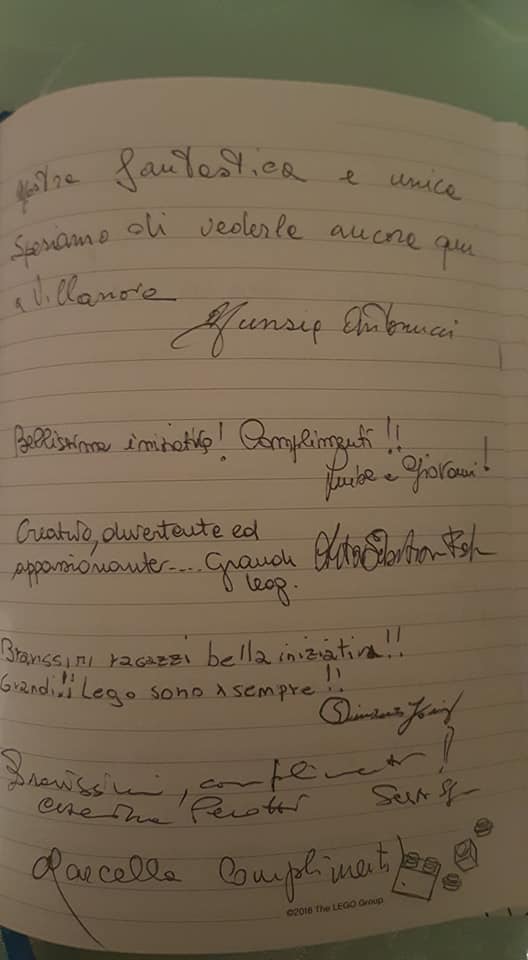 mostra fantastica e unica
Speriamo di vederla ancora qui
a Villanova
Antonucci
Bellissima iniziativa! Complimenti!!
e Giovanni!
Creativo, divertente ed
appassionante.... Grandi
lego.
Bravissimi ragazzi bella iniziativa!!
Grandi!! i Lego sono x sempre!!
Bravissimi, complimenti!
Perotti
Marcella Complimenti
©2016 The LEGO Group.